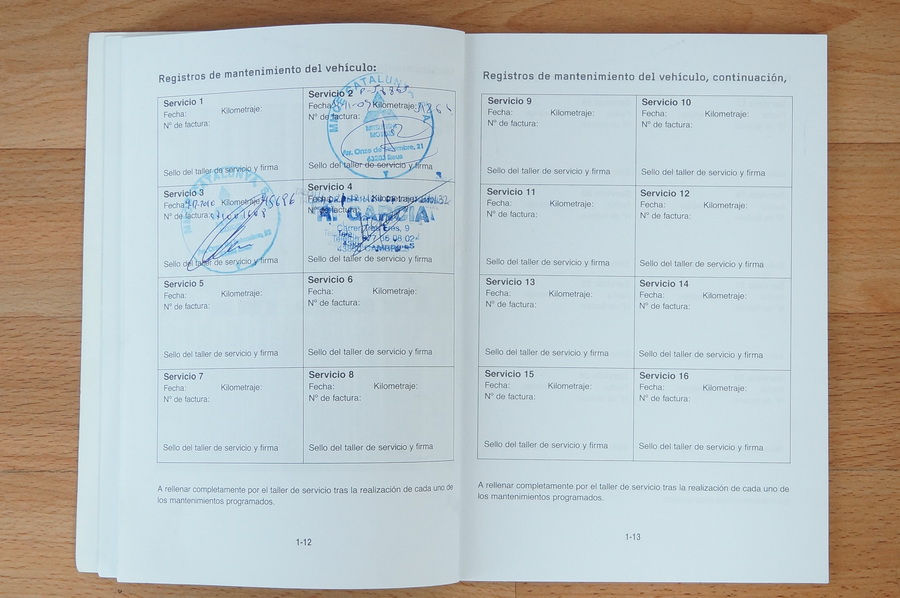 Registros de mantenimiento del vehículo:
Servicio 1
Fecha: Kilometraje:
Nº de factura:
Sello del taller de servicio y firma
Servicio 2
Fecha: Kilometraje:
Nº de factura:
Av. Onze de Setembre, 21
43203 Reus
Sello del taller de servicio y firma
Servicio 3
Fecha: Kilometraje:
Nº de factura:
Sello del taller de servicio y firma
Servicio 4
Fecha: Kilometraje:
Nº de factura:
GARCIA
Sello del taller de servicio y firma
Servicio 5
Fecha: Kilometraje:
Nº de factura:
Sello del taller de servicio y firma
Servicio 6
Fecha: Kilometraje:
Nº de factura:
Sello del taller de servicio y firma
Servicio 7
Fecha: Kilometraje:
Nº de factura:
Sello del taller de servicio y firma
Servicio 8
Fecha: Kilometraje:
Nº de factura:
Sello del taller de servicio y firma
A rellenar completamente por el taller de servicio tras la realización de cada uno de
los mantenimientos programados.
1-12
Registros de mantenimiento del vehículo, continuación,
Servicio 9
Fecha: Kilometraje:
Nº de factura:
Sello del taller de servicio y firma
Servicio 10
Fecha: Kilometraje:
Nº de factura:
Sello del taller de servicio y firma
Servicio 11
Fecha: Kilometraje:
Nº de factura:
Sello del taller de servicio y firma
Servicio 12
Fecha: Kilometraje:
Nº de factura:
Sello del taller de servicio y firma
Servicio 13
Fecha: Kilometraje:
Nº de factura:
Sello del taller de servicio y firma
Servicio 14
Fecha: Kilometraje:
Nº de factura:
Sello del taller de servicio y firma
Servicio 15
Fecha: Kilometraje:
Nº de factura:
Sello del taller de servicio y firma
Servicio 16
Fecha: Kilometraje:
Nº de factura:
Sello del taller de servicio y firma
A rellenar completamente por el taller de servicio tras la realización de cada uno de
los mantenimientos programados.
1-13